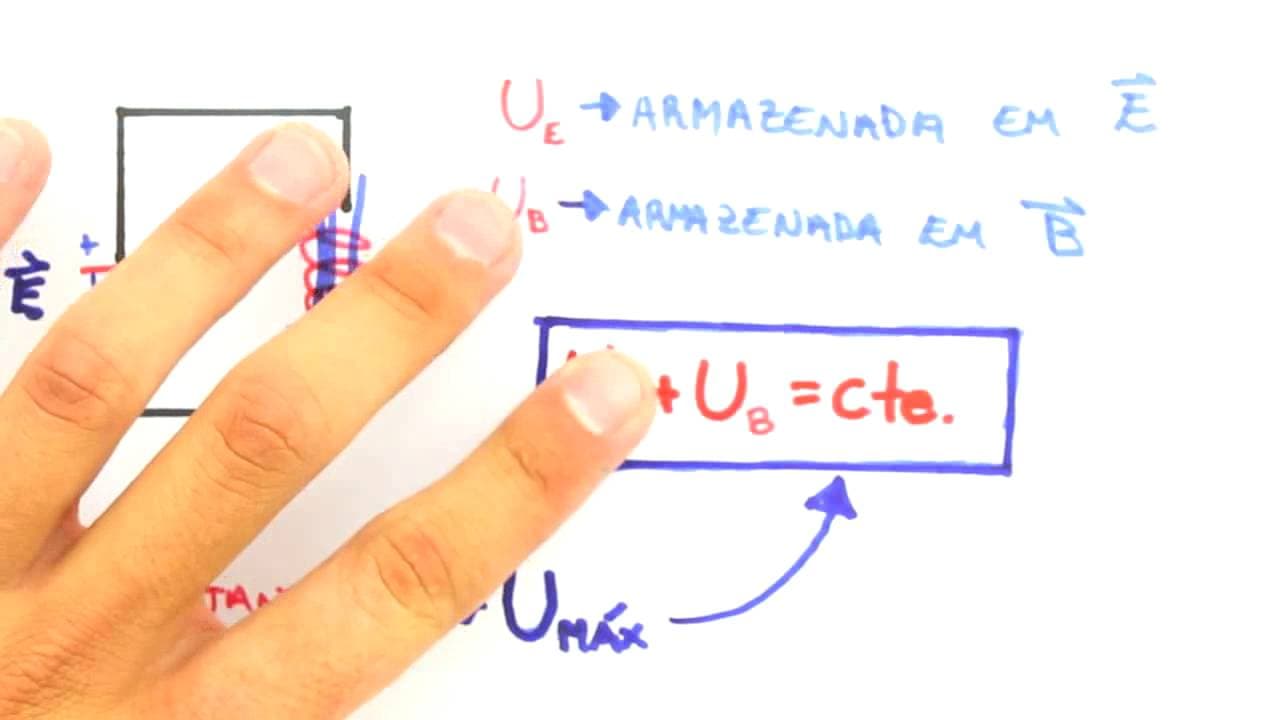 U_E → ARMAZENADA EM E⃗
U_B → ARMAZENADA EM B⃗
+
E⃗
+ U_B = cte.
U_MÁX